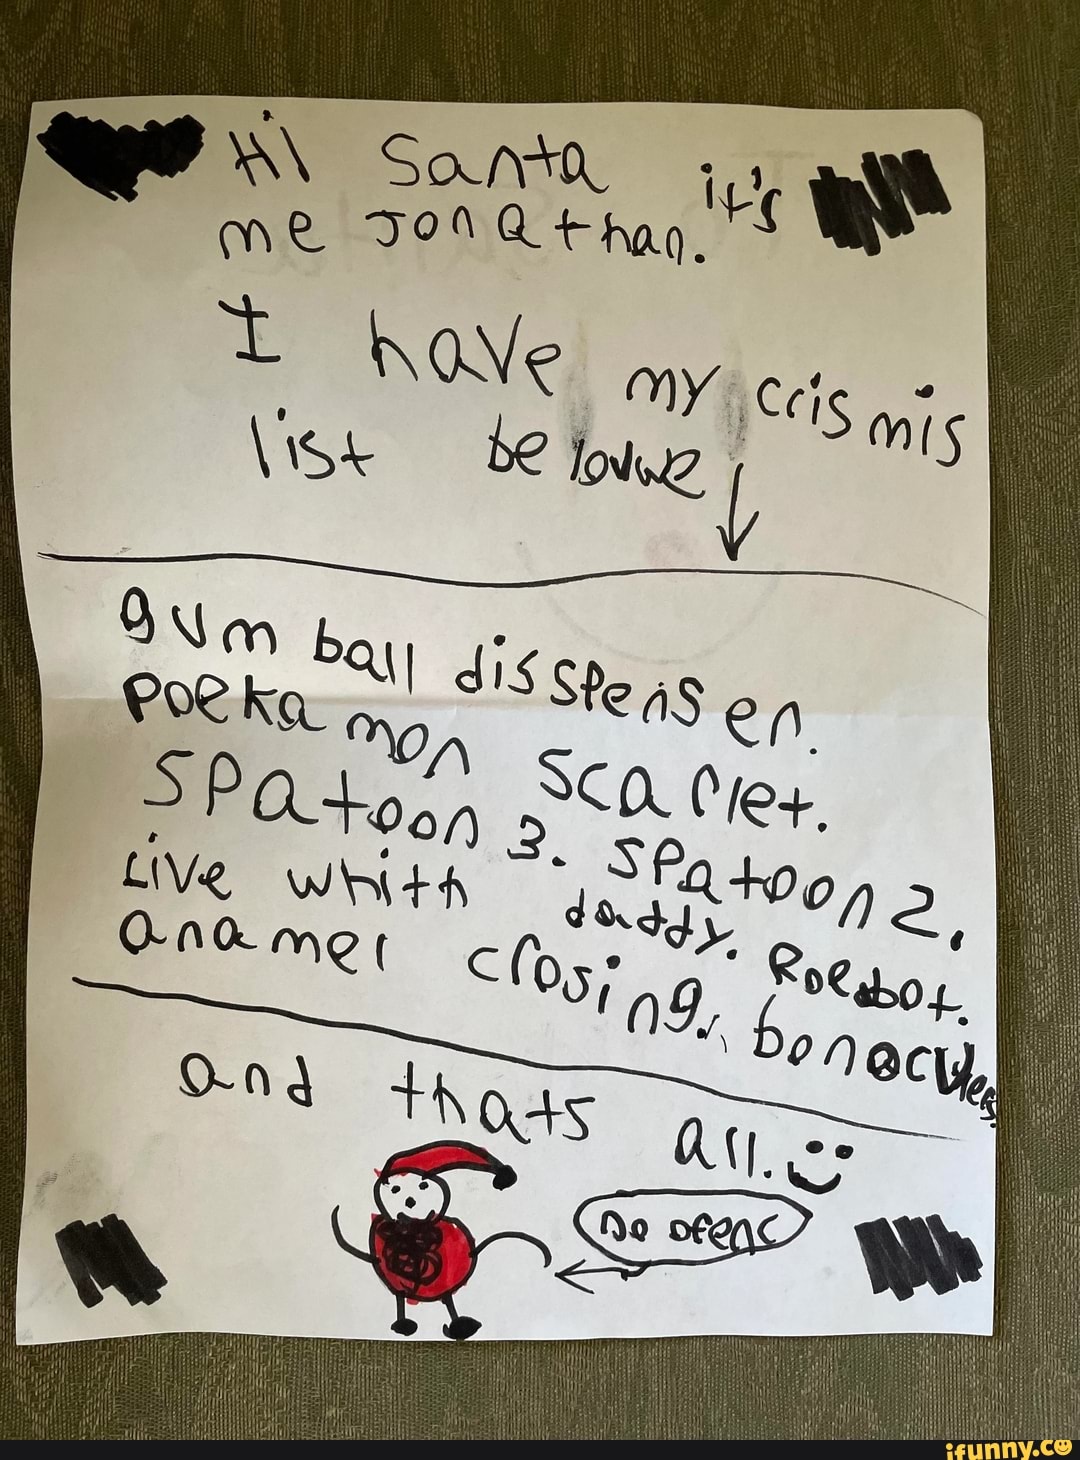 Hi Santa it's
me Jonathan.
I have my crismis
list belouwe
gum ball disspensen.
Poeka mon Scarlet.
Spatoon 3. Spatoon 2.
Live whith daddy. Roebot.
anamel crosing. bonoculees.
and thats all.
no ofenc
ifunny.co